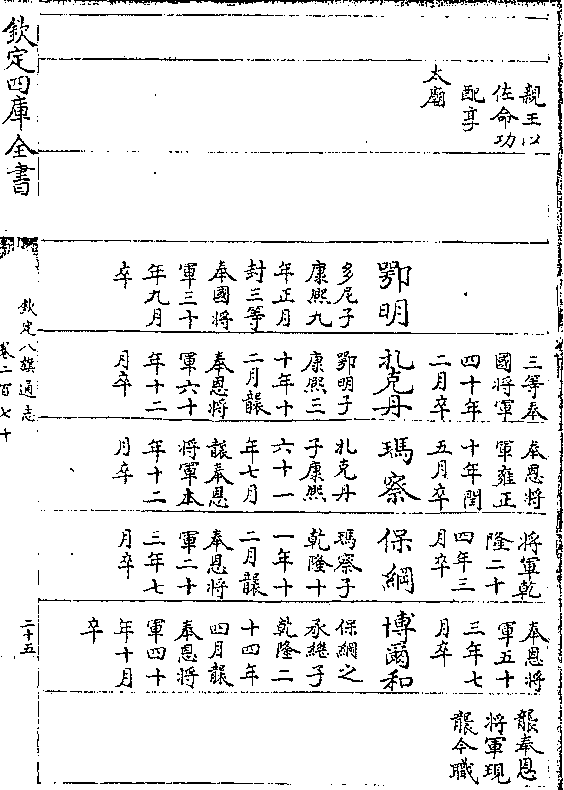 親王以
佐命功
配享
太廟
鄂明
多尼子
康熙九
年正月
封三等
奉國將
軍三十
年九月
卒
三等奉
國將軍
四十年
二月卒
扎克丹
鄂明子
康熙三
十年十
二月襲
奉恩將
軍六十
年十二
月卒
奉恩將
軍雍正
十年閏
五月卒
瑪察
扎克丹
子康熙
六十一
年七月
襲奉恩
將軍本
年十二
月卒
將軍乾
隆二十
四年三
月卒
保綱
瑪察子
乾隆十
一年十
二月襲
奉恩將
軍二十
三年七
月卒
奉恩將
軍五十
三年七
月卒
博爾和
保綱之
承繼子
乾隆二
十四年
四月襲
奉恩將
軍四十
年十月
卒
襲奉恩
將軍現
襲今職
欽定四庫全書
欽定八旗通志
卷二百七十
二十五